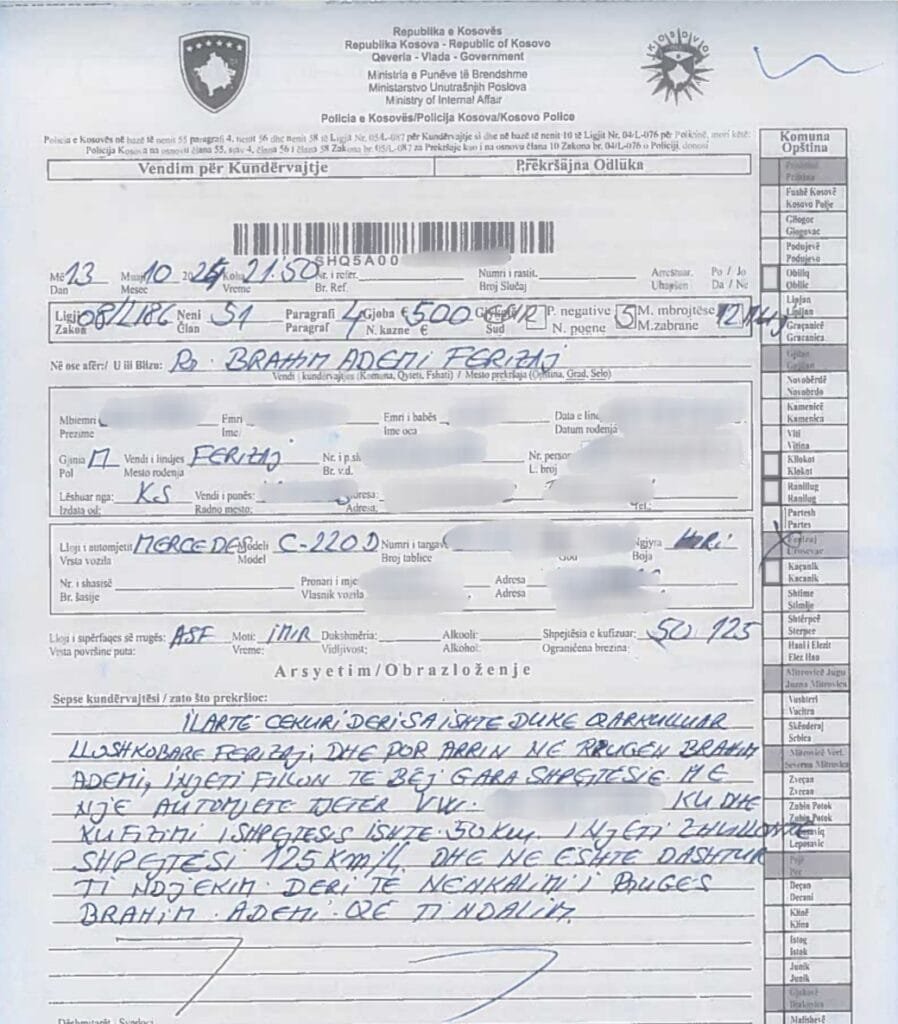 Republika e Kosovës
Republika Kosova - Republic of Kosovo
Qeveria - Vlada - Government
Ministria e Punëve të Brendshme
Ministarstvo Unutrašnjih Poslova
Ministry of Internal Affair
Policia e Kosovës/Policija Kosova/Kosovo Police
KOSOVO
Policia e Kosovës në bazë të nenit 55 paragrafi 4, nenit 56 dhe nenit 58 të Ligjit Nr. 05/L-087 për Kundërvajtje si dhe në bazë të nenit 10 të Ligjit Nr. 04/L-076 për Policinë, mori këtë:
Policija Kosova na osnovu člana 55, stav 4, člana 56 i člana 58 Zakona br. 05/L-087 za Prekršaje kao i na osnovu člana 10 Zakona br. 04/L-076 o Policiji, donosi
Vendim për Kundërvajtje Prekršajna Odluka
SHQ5A00
Më 13 Muaj 10 2025 Koha 21:50 Nr. i refer. Numri i rastit. Arrestuar. Po / Jo
Dan Mesec Vreme Br. Ref. Broj Slučaj Uhapšen Da / Ne
Ligji 08/L186 Neni 51 Paragrafi 4 Gjoba € 500 EUR P. negative 5 M. mbrojtëse 12 MUJ
Zakon Član Paragraf N. kazne € Sud N. poene M.zabrane
Në ose afër:/ U ili Blizu: Rr. BRAHIM ADEMI FERIZAJ
Vendi i kundërvajtjes (Komuna, Qyteti, Fshati) / Mesto prekršaja (Opština, Grad, Selo)
Mbiemri Emri Emri i babës Data e lind
Prezime Ime Ime oca Datum rođenja
Gjinia M Vendi i lindjes FERIZAJ Nr. i p.sh Nr. person
Pol Mesto rođenja Br. v.d. L. broj
Lëshuar nga: KS Vendi i punës: Adresa: Tel.:
Izdata od: Radno mesto: Adresa:
Lloji i automjetit MERCEDES Modeli C-220D Numri i targave Ngjyra HIRI
Vrsta vozila Model Broj tablice God Boja
Nr. i shasisë Pronari i mje Adresa
Br. šasije Vlasnik vozila Adresa
Lloji i sipërfaqes së rrugës: ASF Moti: IMIR Dukshmëria: Alkooli: Shpejtësia e kufizuar: 50 125
Vrsta površine puta: Vreme: Vidljivost: Alkohol: Ograničena brezina:
Arsyetim/Obrazloženje
Sepse kundërvajtësi / zato što prekršioc:
ILARTE CEKURI DERISA ISHTE DUKE QARKULLUAR
LLOSHKOBARE FERIZAJ, DHE POR ARRIN NE RRUGEN BRAHIM
ADEMI, INJETI FILLON TE BËJ GARA SHPEJTËSIE ME
NJË AUTOMJETE TJETER VW. KU DHE
KUFIZIMI I SHPEJTESIS ISHTE 50 KM. INJETI ZHVILLONTE
SHPEJTËSI 125 KM/h DHE NE ËSHTE DASHTUR
TI NDJEKIM DERI TË NENKALIMI I RRUGES
BRAHIM ADEMI QË TI NDALIM.
Dëshmitarët / Svedoci
Komuna
Opština
Prishtinë
Priština
Fushë Kosovë
Kosovo Polje
Gllogoc
Glogovac
Podujevë
Podujevo
Obiliq
Obilic
Lipjan
Lipljan
Graçanicë
Gracanica
Gjilan
Gnjilan
Novobërdë
Novobrdo
Kamenicë
Kamenica
Viti
Vitina
Kllokot
Klokot
Ranillug
Ranilug
Partesh
Partes
Ferizaj
Urosevac
Kaçanik
Kacanik
Shtime
Stimlje
Shtërpcë
Sterpce
Hani i Elezit
Elez Han
Mitrovicë Jugu
Juzna Mitrovica
Vushtrri
Vucitrn
Skënderaj
Srbica
Mitrovicë Veri.
Severna Mitrovica
Zveçan
Zvecan
Zubin Potok
Zubin Potok
Leposaviq
Leposavic
Pejë
Pec
Deçan
Decani
Klinë
Klina
Istog
Istok
Junik
Junik
Gjakovë
Đakovica
Malishevë